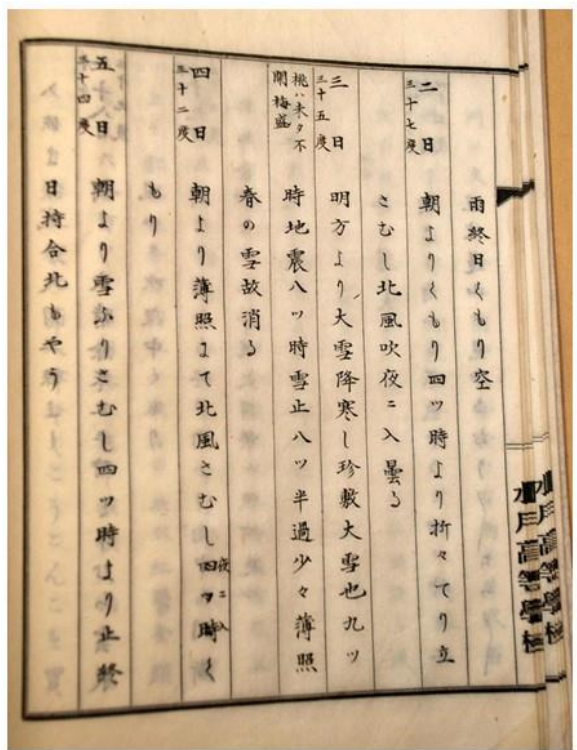 雨終日くもり空
二日
三十七度
朝よりくもり四ツ時より折々てり立
さむし北風吹夜ニ入曇る
三日
三十五度
明方より大雪降寒し珍敷大雪也九ツ
桃ハ未タ不
開梅盛
時地震八ツ時雪止八ツ半過少々薄照
春の雪故消る
四日
三十二度
朝より薄照まて北風さむし四ツ時く
夜ニ入
もり
五日
三十四度
朝より雪ふりさむし四ツ時より止終
日持合北もやう
水戸高等學校
水戸高等學校